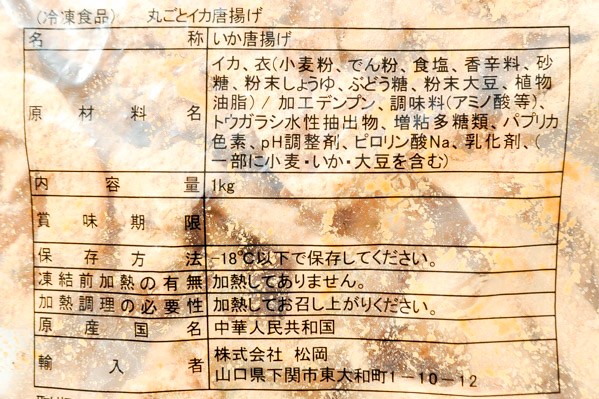 (冷凍食品) 丸ごとイカ唐揚げ
名称 いか唐揚げ
原材料名 イカ、衣(小麦粉、でん粉、食塩、香辛料、砂
糖、粉末しょうゆ、ぶどう糖、粉末大豆、植物
油脂) / 加工デンプン、調味料(アミノ酸等)、
トウガラシ水性抽出物、増粘多糖類、パプリカ
色素、pH調整剤、ピロリン酸Na、乳化剤、(
一部に小麦・いか・大豆を含む)
内容量 1kg
賞味期限
保存方法 -18℃以下で保存してください。
凍結前加熱の有無 加熱してありません。
加熱調理の必要性 加熱してお召し上がりください。
原産国名 中華人民共和国
輸入者 株式会社 松岡
山口県下関市東大和町1-10-12